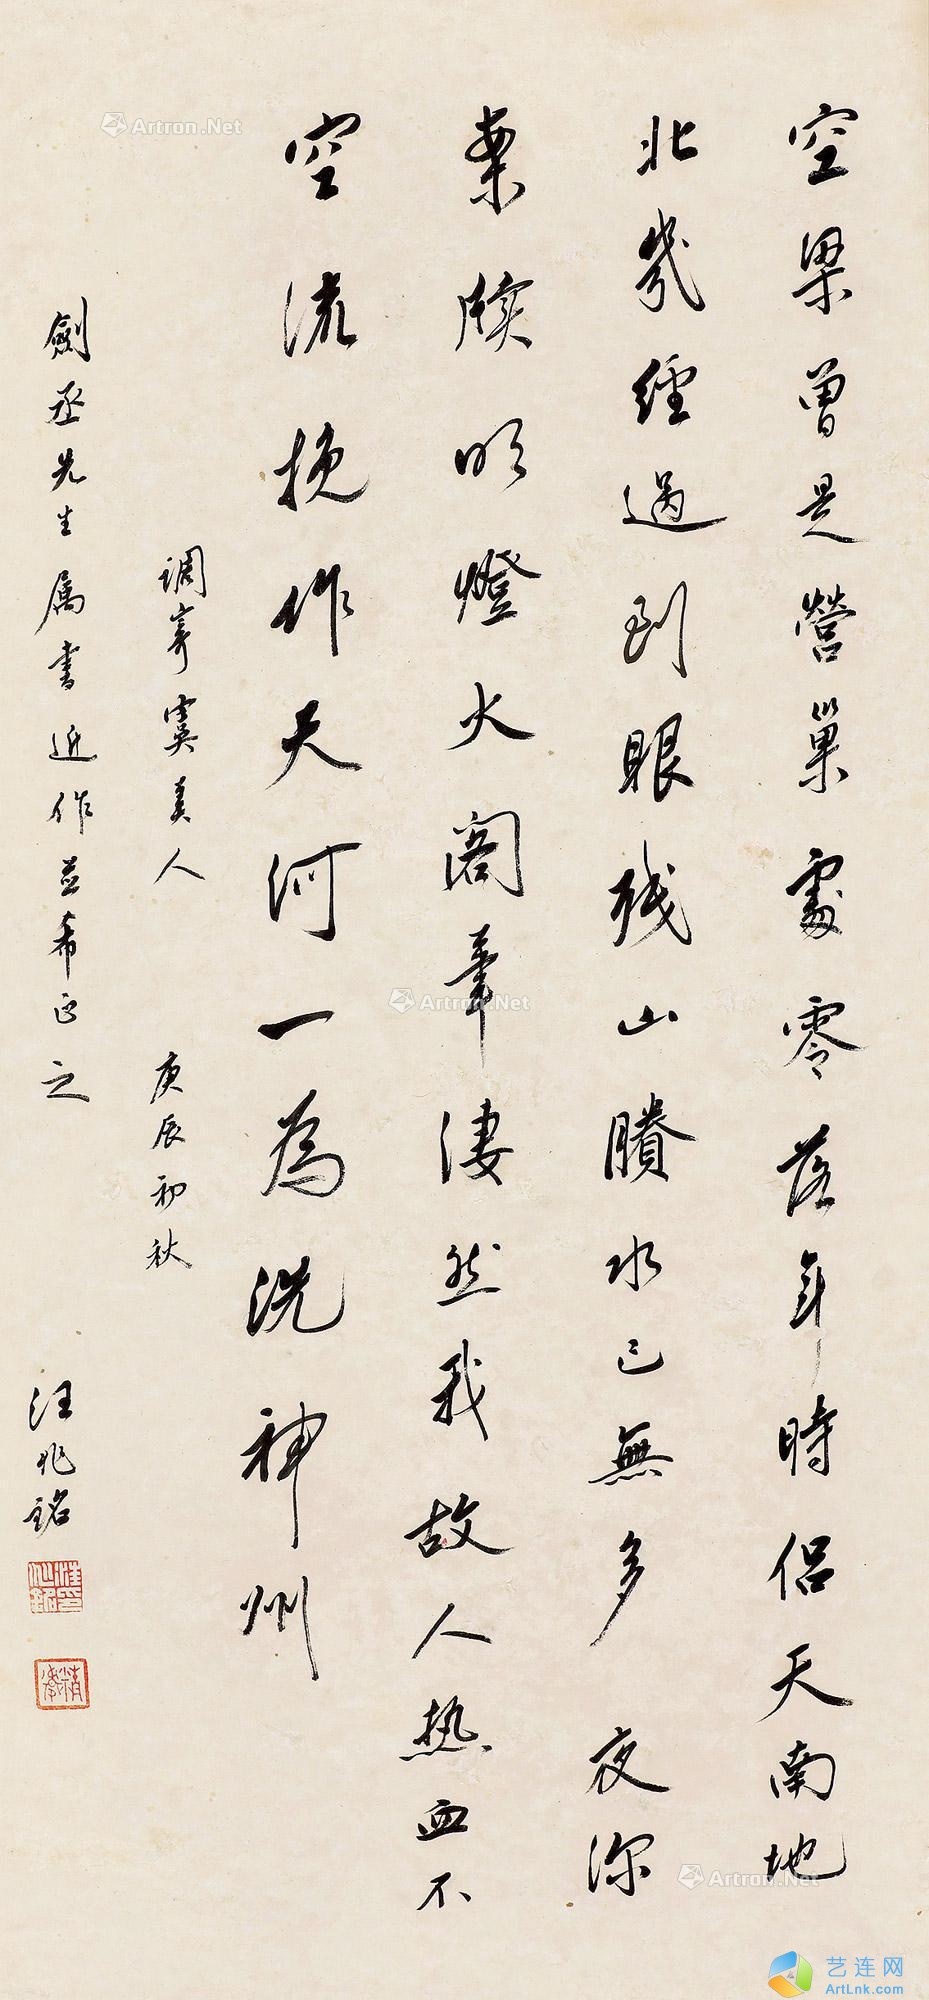 空梁曾是營巢處零落年時侶天南地
北幾經過到眼殘山賸水已無多夜深
案牘明燈火閣筆淒然我故人热血不
空流挽作天河一為洗神州
調寄虞美人 庚辰初秋
劍丞先生属書近作並希正之 汪兆銘
汪兆銘印
精衛
Artron.Net
Artron.Net
Artron.Net
艺连网
ArtLnk.Com